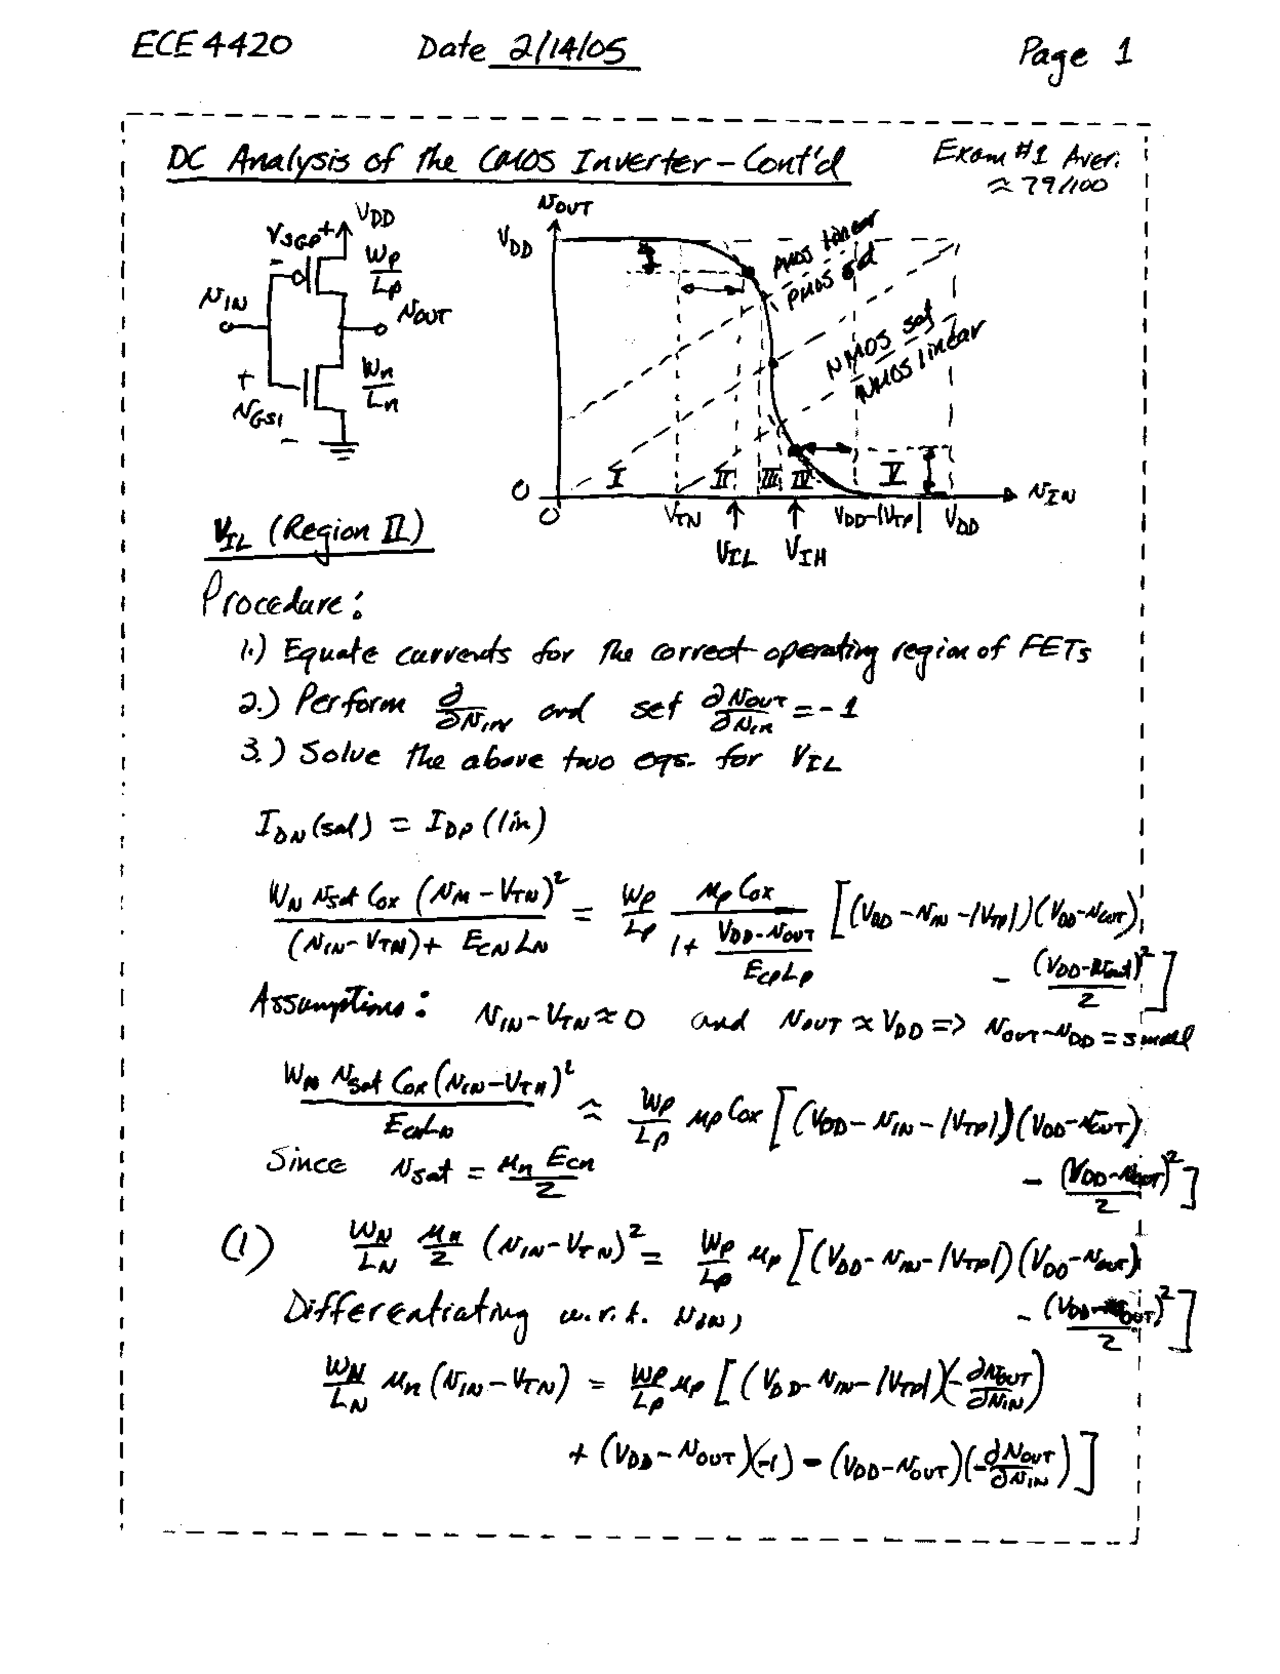 ECE 4420 Date 2/14/05 Page 1
DC Analysis of the CMOS Inverter - Cont'd
Exam #1 Aver.
≈ 79/100
V_SGP + V_DD
- W_P/L_P
v_IN v_OUT
+ W_n/L_n
v_GS1
-
v_OUT
V_DD
PMOS linear
PMOS sat
NMOS sat
NMOS linear
I II III IV V
0 v_IN
0 V_TN V_DD-|V_TP| V_DD
V_IL V_IH
V_IL (Region II)
Procedure:
1.) Equate currents for the correct operating region of FETs
2.) Perform ∂/∂v_IN and set ∂v_OUT/∂v_IN = -1
3.) Solve the above two eqs. for V_IL
I_DN(sat) = I_DP(lin)
W_N v_sat C_ox (v_IN - V_TN)^2 / ((v_IN - V_TN) + E_CN L_N) = W_P/L_P · μ_p C_ox / (1 + (V_DD - v_OUT)/(E_CP L_P)) [(V_DD - v_IN - |V_TP|)(V_DD - v_OUT)
- (V_DD - v_out)^2/2]
Assumptions: v_IN - V_TN ≈ 0 and v_OUT ≈ V_DD => v_OUT - v_DD = small
W_N v_sat C_ox (v_IN - V_TN)^2 / (E_CN L_N) ≈ W_P/L_P μ_p C_ox [(V_DD - v_IN - |V_TP|)(V_DD - v_OUT)
- (V_DD - v_OUT)^2/2]
Since v_sat = μ_n E_cn/2
(1) W_N/L_N μ_n/2 (v_IN - V_TN)^2 = W_P/L_P μ_p [(V_DD - v_IN - |V_TP|)(V_DD - v_OUT)
- (V_DD - v_OUT)^2/2]
Differentiating w.r.t. v_IN,
W_N/L_N μ_n (v_IN - V_TN) = W_P/L_P μ_p [(V_DD - v_IN - |V_TP|)(-∂v_OUT/∂v_IN)
+ (V_DD - v_OUT)(-1) - (V_DD - v_OUT)(-∂v_OUT/∂v_IN)]